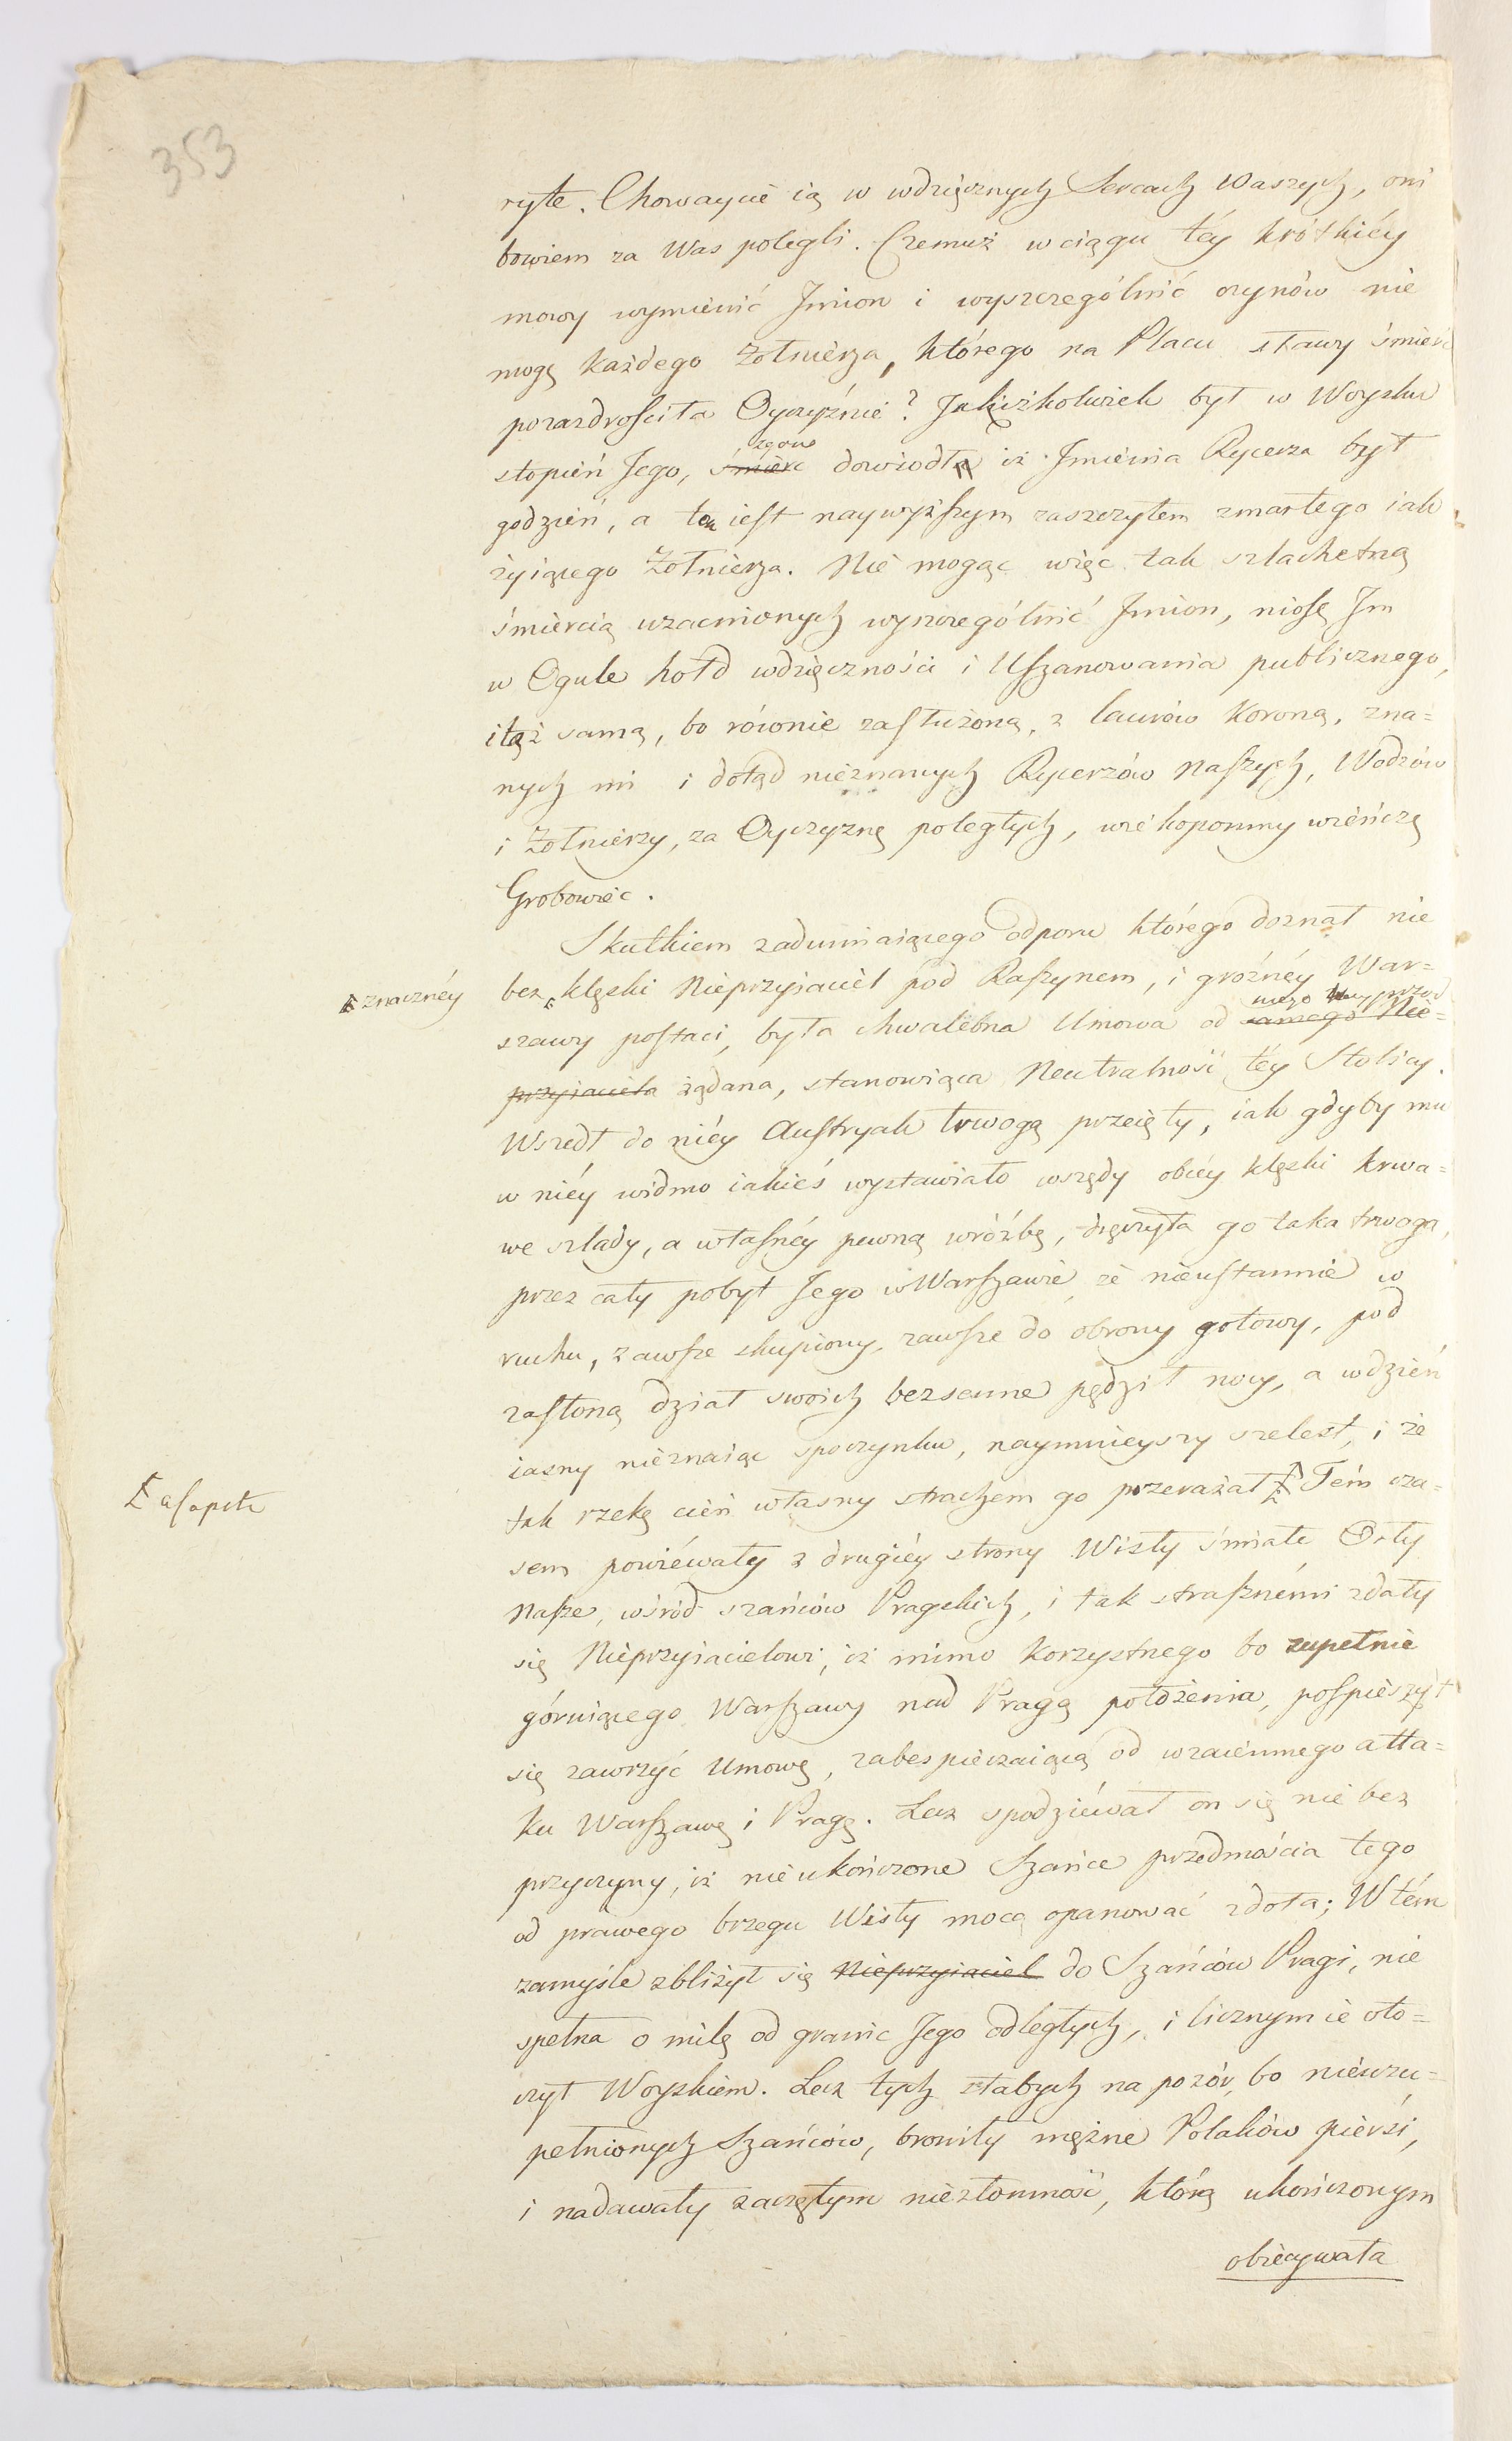 353
ryte. Chowaycie ią w wdzięcznych Sercach Waszych, oni
bowiem za Was polegli. Czemuż w ciągu téy krótkiéy
mowy wymienić Jmion i wyszczególnić czynów nie
mogę każdego Żołnierza, którego na Placu sławy śmierć
pozazdrościła Oyczyźnie? Jakiżkolwiek był w Woysku
zgone
stopień Jego, śmierć dowiodła iż Jmienia Rycerza był
godzien, a to iest naywyższym zaszczytem zmarłego iak
żyiącego Żołnierza. Nie mogąc więc tak szlachetną
śmiercią uzacnionych wyszczególnić Jmion, niosę Jm
w Ogule hołd wdzięczności i Uszanowania publicznego,
i tąż samą, bo równie zasłużoną, z laurów Koroną, zna=
nych mi i dotąd nieznanych Rycerzów Naszych, Wodzów
i Żołnierzy, za Oyczyznę poległych, wiekopomny wieńczę
Grobowiec.
Skutkiem zadumiaiącego odporu którego doznał nie
znacznéy
bez klęski Nieprzyiaciel pod Raszynem, i groźnéy War=
szawy postaci, była chwalebna Umowa od samego Nie=
przyiaciela żądana, stanowiąca Neutralność téy Stolicy.
Wszedł do niéy Austryak trwogą przeięty, iak gdyby mu
w niéy widmo iakieś wystawiało wszędy obcéy klęski krwa=
we szlady, a własnéy pewną wróżbę, dręczyła go taka trwoga,
przez cały pobyt Jego w Warszawie, że nieustannie w
ruchu, zawsze skupiony, zawsze do obrony gotowy, pod
zasłoną dział swoich bezsenne pędził nocy, a w dzień
iasny nieznaiąc spoczynku, naymnieyszy szelest, i że
tak rzekę cień własny strachem go przerażał Tém cza=
a capite
sem powiéwały z drugiéy strony Wisły śmiałe Orły
Nasze, wśród szańców Pragskich, i tak straszném​i zdały
się Nieprzyiacielowi, iż mimo korzystnego bo zupełnie
góruiącego Warszawy nad Pragą położenia, pospieszył
się zawrzyć Umowę, zabespieczaiącą od wzaiemnego atta=
ku Warszawę i Pragę. Lecz spodziéwał on się nie bez
przyczyny, iż nieukończone Szańce przedmościa tego
od prawego brzegu Wisły mocą opanować zdoła; W tém
zamyśle zbliżył się Nieprzyiaciel do Szańców Pragi, nie
spełna o milę od granic Jego odległych, i licznym ie oto=
czył Woyskiem. Lecz tych słabych na pozór, bo nieuzu=
pełnionych Szańców, broniły mężne Polaków piersi,
i nadawały zaczętym niezłomność, którą ukończonym
obiecywała